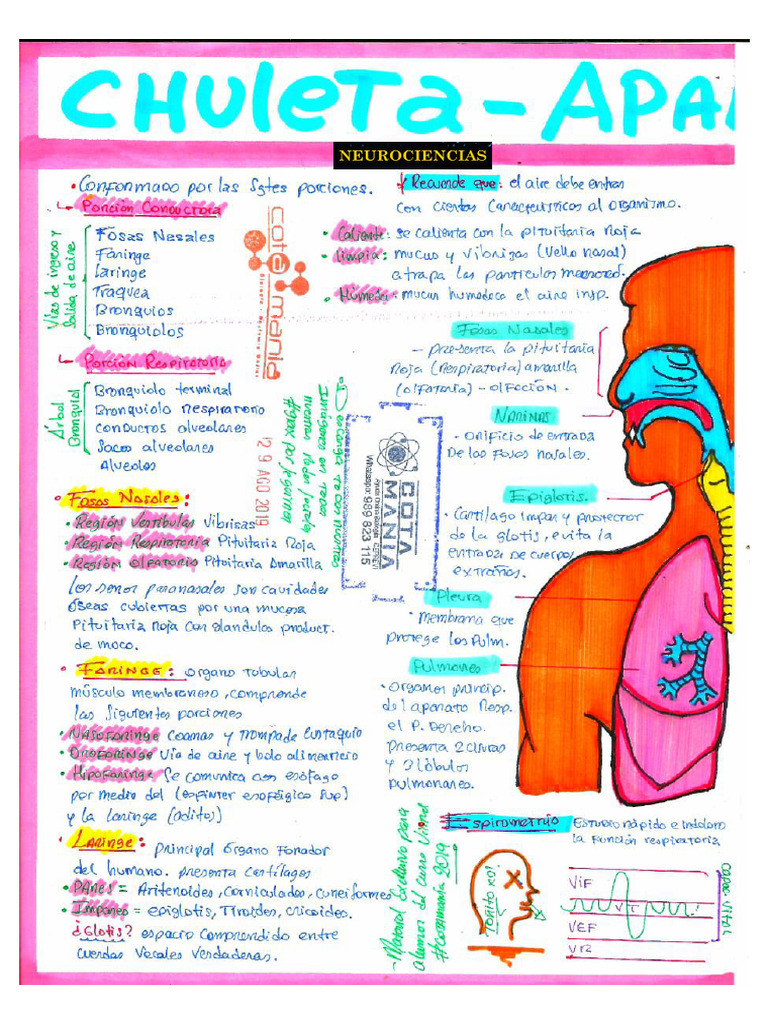 CHULETA - APA
NEUROCIENCIAS
• Conformado por las Sgtes porciones.
Porción Conductora
Vías de ingreso y salida de aire
Fosas Nasales
Faringe
Laringe
Traquea
Bronquios
Bronquiolos
Porción Respiratoria
Árbol Bronquial
Bronquiolo terminal
Bronquiolo respiratorio
conductos alveolares
Sacos alveolares
Alveolos
• Fosas Nasales:
• Región Vestibular Vibrisas
• Región Respiratoria Pituitaria Roja
• Región Olfatoria Pituitaria Amarilla
Los senos paranasales son cavidades
óseas cubiertas por una mucosa
Pituitaria Roja con glandulas product.
de moco.
• FARINGE: Organo tubular
músculo membranoso, comprende
las siguientes porciones
• NASOFARINGE Coanas y trompa de Eustaquio
• OROFARINGE Vía de aire y bolo alimenticio
• Hipofaringe Se comunica con esófago
por medio del (esfinter esofágico Sup)
y la laringe (aditos)
• Laringe: principal Órgano fonador
del humano. presenta cartílagos
• PAres = Aritenoides, Corniculados, Cuneiformes
• Impares = epiglotis, Tiroides, cricoides.
¿Glotis? espacio comprendido entre
cuerdas Vocales Verdaderas.
* Recuerde que: el aire debe entrar
con ciertas características al organismo.
• Caliente: se calienta con la pituitaria roja
• limpia: mucus y vibrizas (Vello nasal)
atrapa las partículas
• Húmeda: mucus humedece el aire insp.
Fosas Nasales
- presenta la pituitaria
Roja (Respiratoria) amarilla
(olfatoria) - olfacción.
Narinas
- orificio de entrada
De las fosas nasales.
Epiglotis.
- Cartílago impar y protector
de la glotis, evita la
entrada de cuerpos
extraños.
Pleura
- membrana que
protege los Pulm.
Pulmones
• Organos princip.
del aparato Resp.
el P. Derecho.
presenta 2 cisuras
y 3 lóbulos
pulmonares.
cotamania
29 AGO 2019
COTA
MANIA
Whatsapp: 989 823 115
- Material Exclusivo para
alumnos del Curso Virtual
#Cotamania 2019
Espirometría
Estudio rápido e indoloro
la función respiratoria
VIF
VT
VEF
VR
capac. VITAL